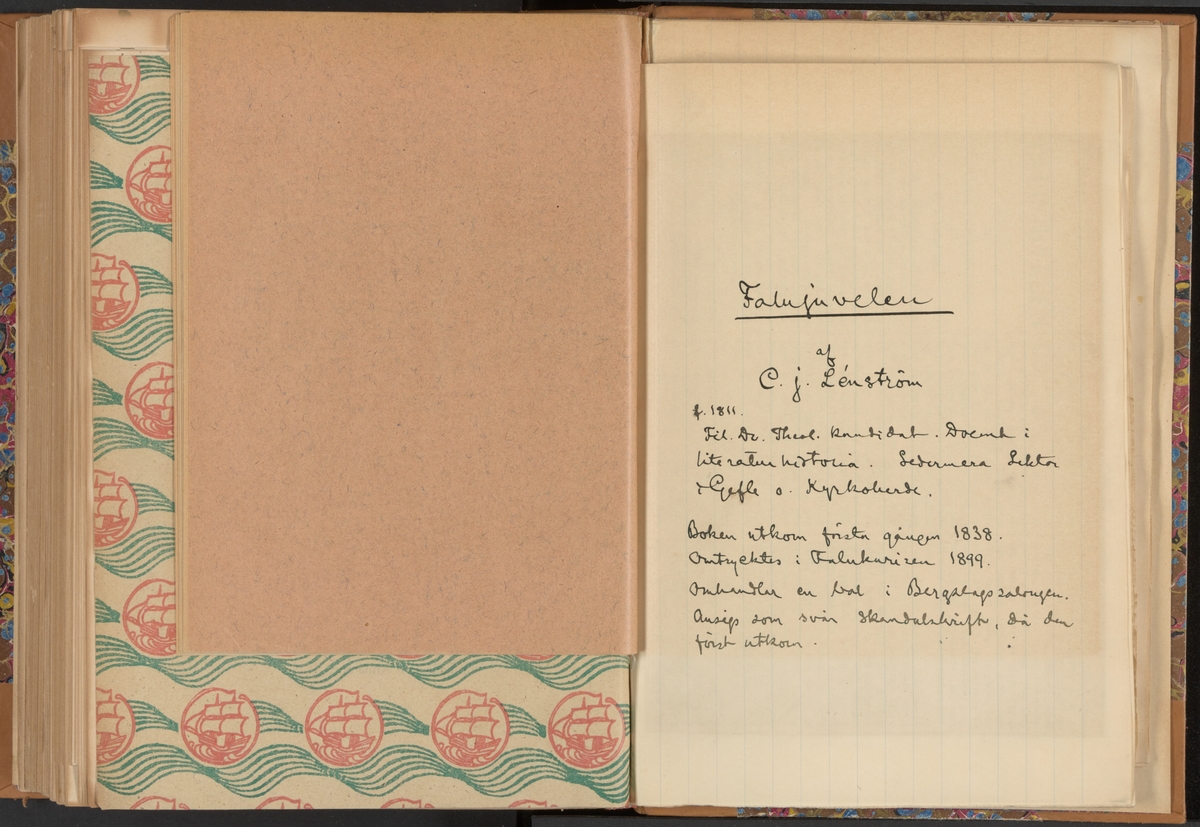 Falujuvelen
af
C. J. Lénström
f. 1811.
Fil. Dr. Theol. kandidat. Docent i
literaturhistoria. Sedermera Lektor
i Gefle o. Kyrkoherde.
Boken utkom första gången 1838.
Omtrycktes i Falukuriren 1899.
Omhandlar en bal i Bergslagssalongen.
Ansågs som svår skandalskrift, då den
först utkom.